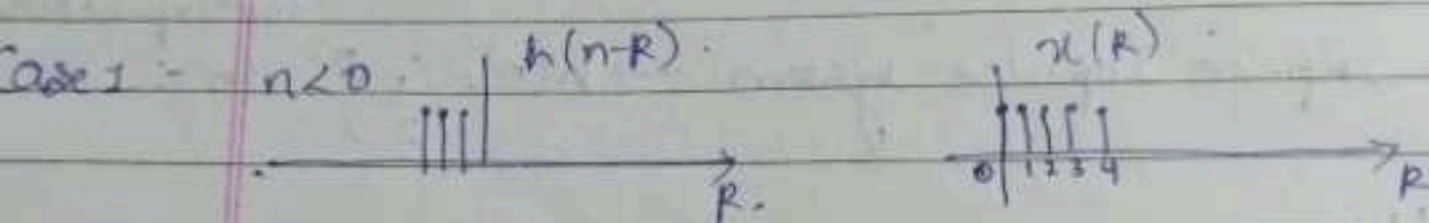 Case 1 :- n<0. h(n-k). x(k)
0 1 2 3 4
k. k